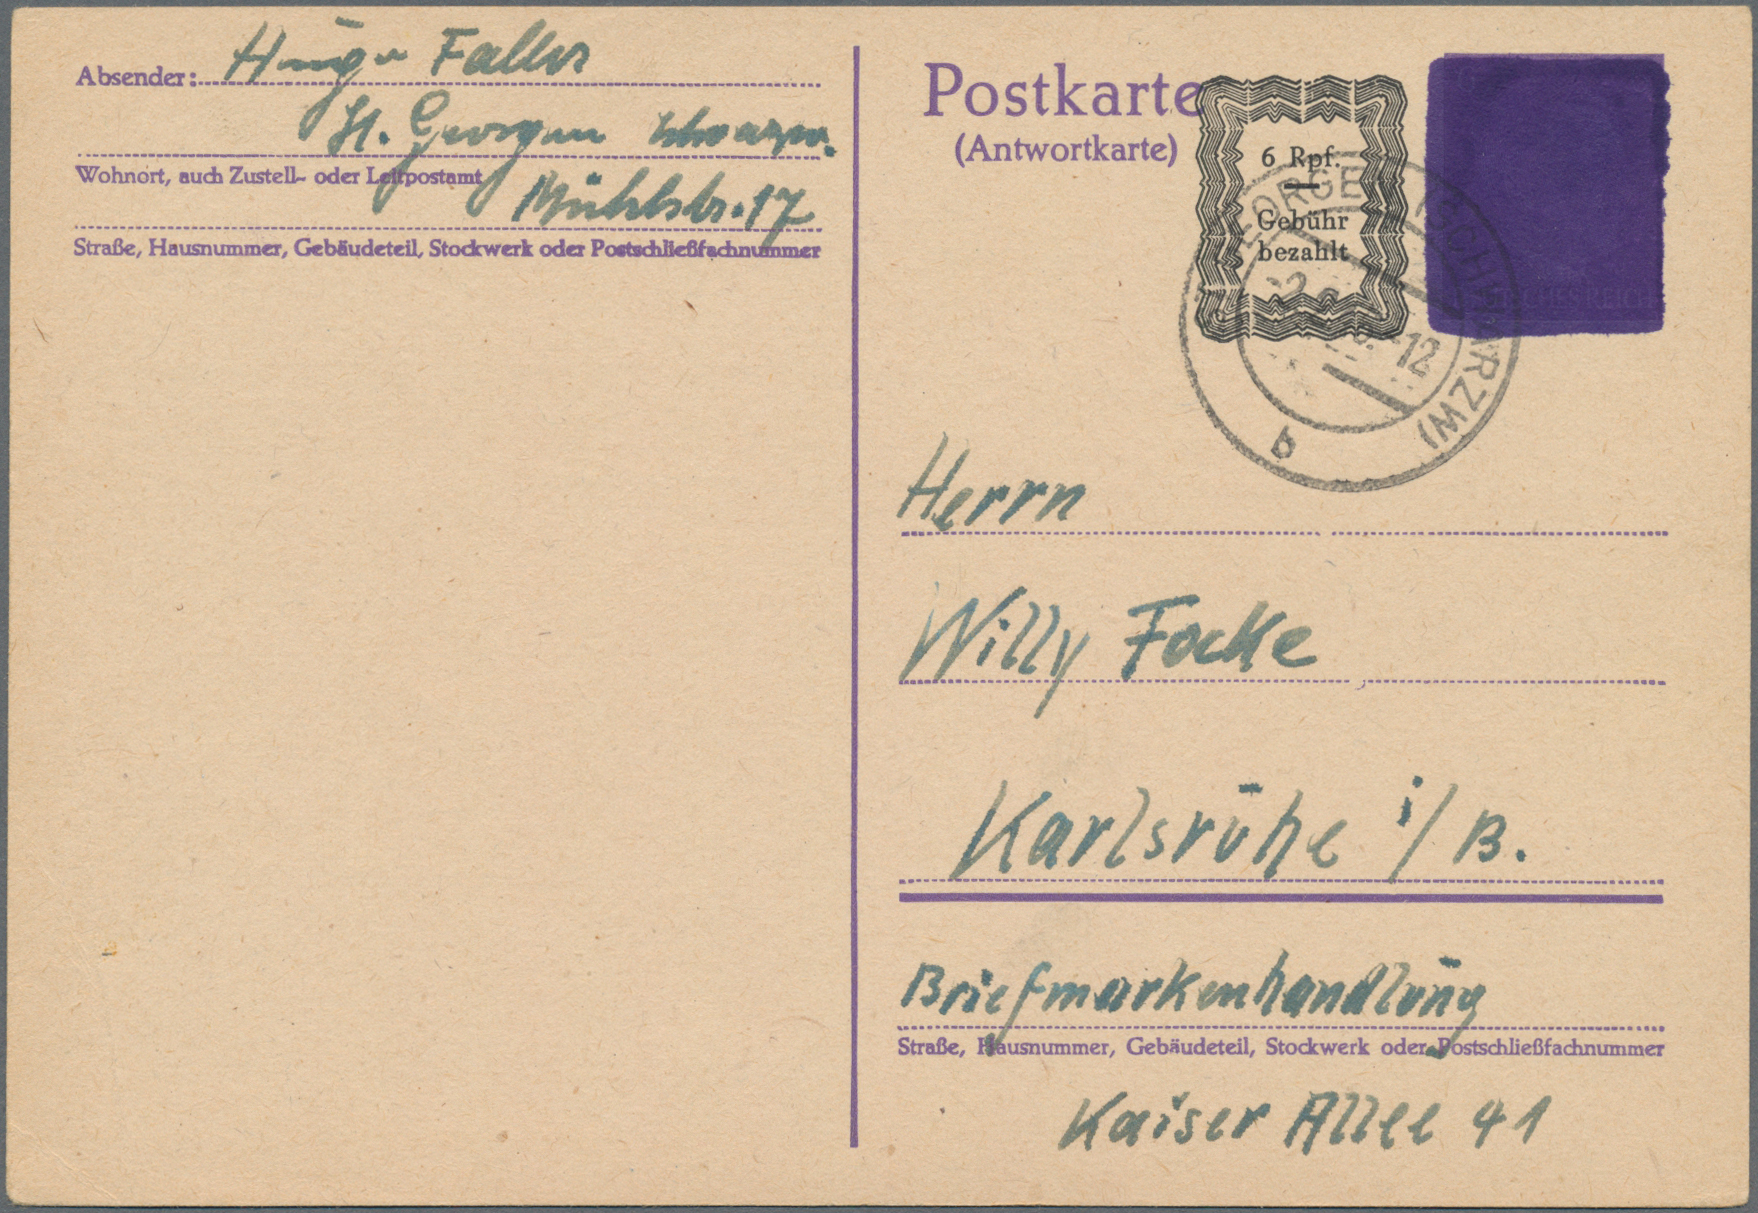 Absender: Hugo Faller
St. Georgen Schwarzw.
Wohnort, auch Zustell- oder Leitpostamt
Mühlstr. 17
Straße, Hausnummer, Gebäudeteil, Stockwerk oder Postschließfachnummer
Postkarte
(Antwortkarte)
6 Rpf.
Gebühr
bezahlt
GEORGEN (SCHWARZW)
-12
b
DEUTSCHES REICH
Herrn
Willy Focke
Karlsruhe i/B.
Briefmarkenhandlung
Straße, Hausnummer, Gebäudeteil, Stockwerk oder Postschließfachnummer
Kaiser Allee 41